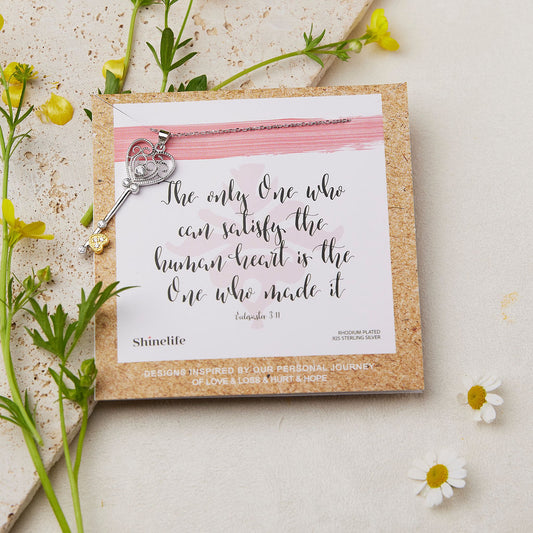 The only One who
can satisfy the
human heart is the
One who made it
Ecclesiastes 3:11
Shinelife
RHODIUM PLATED
925 STERLING SILVER
DESIGNS INSPIRED BY OUR PERSONAL JOURNEY
OF LOVE & LOSS & HURT & HOPE